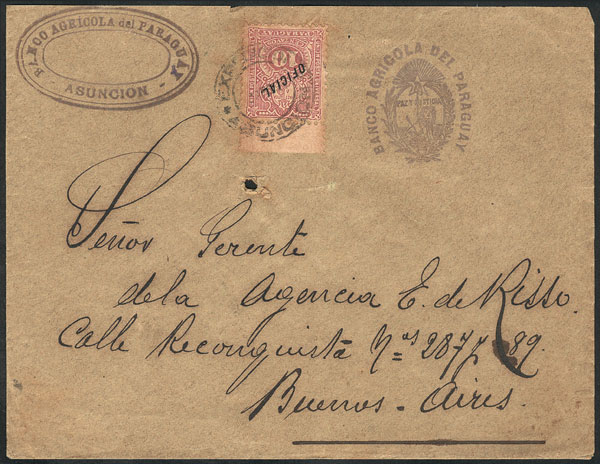 BANCO AGRÍCOLA del PARAGUAY
- ASUNCIÓN -
10
OFICIAL
BANCO AGRICOLA DEL PARAGUAY
PAZ Y JUSTICIA
Señor Gerente
de la Agencia E. de Risso.
Calle Reconquista Nos 287 / 89.
Buenos - Aires.